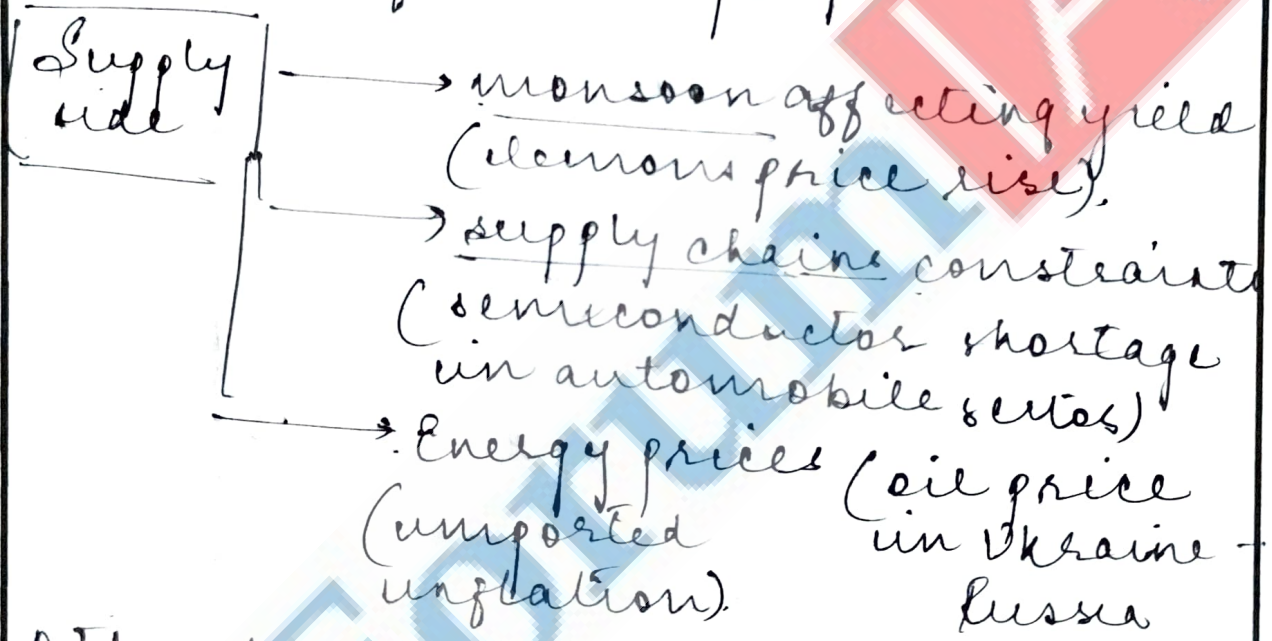 Supply
side
monsoon affecting yield
(lemons price rise).
supply chains constraints
(semiconductor shortage
in automobile sector)
Energy prices (oil price
(imported in Ukraine -
inflation). Russia
Forum